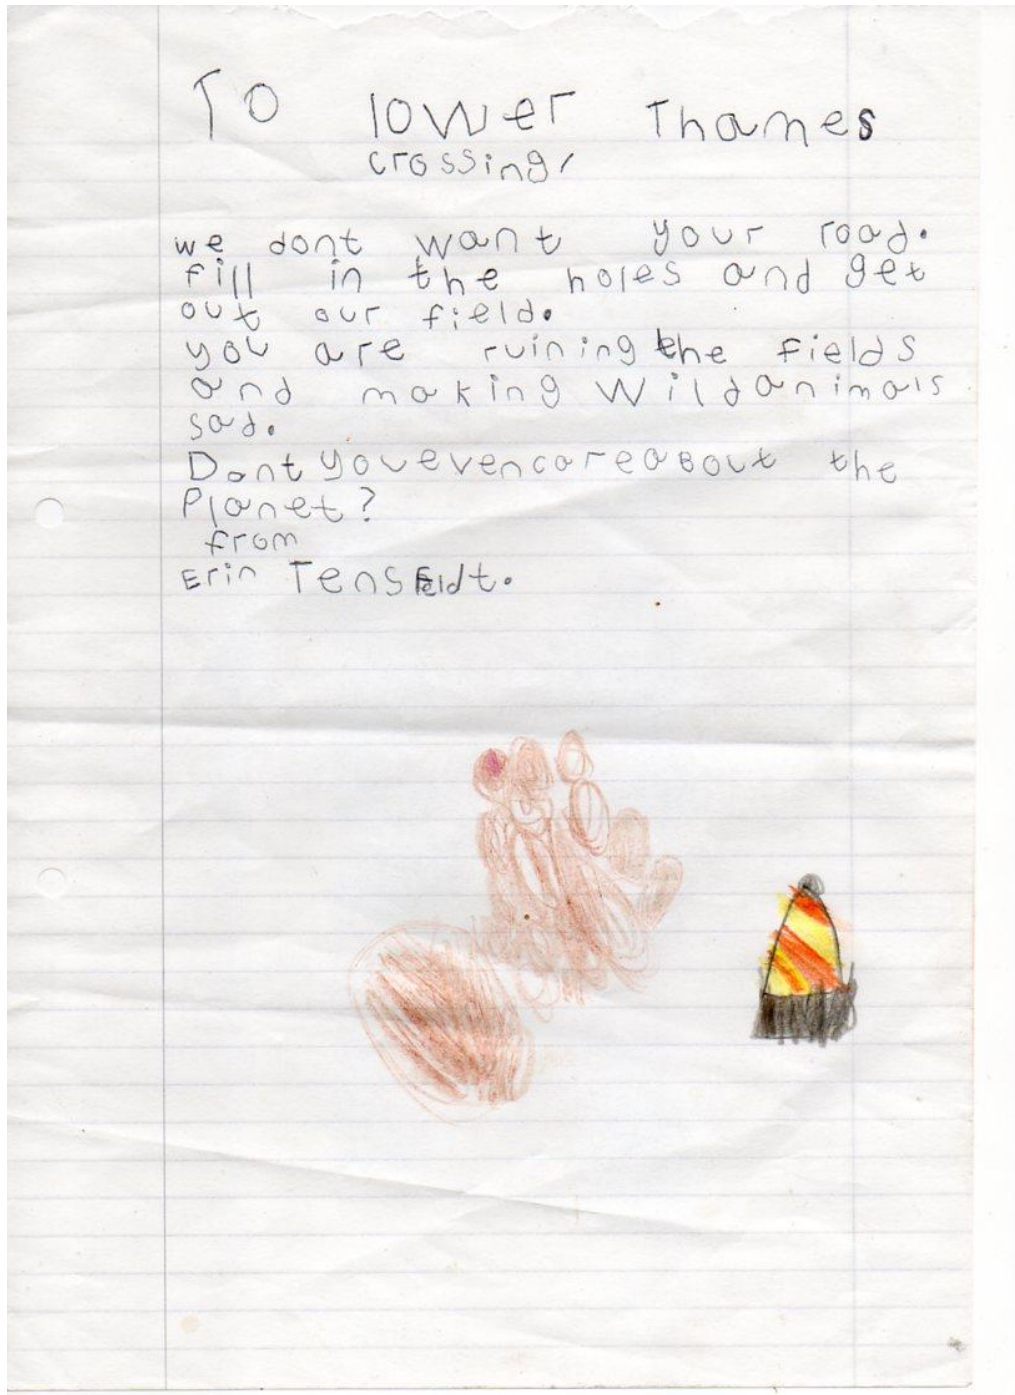 To lower Thames
crossing,
we dont want your road.
fill in the holes and get
out our field.
you are ruining the fields
and making Wild animals
sad.
Dont you even care aBout the
Planet?
from
Erin Tensfeldt.